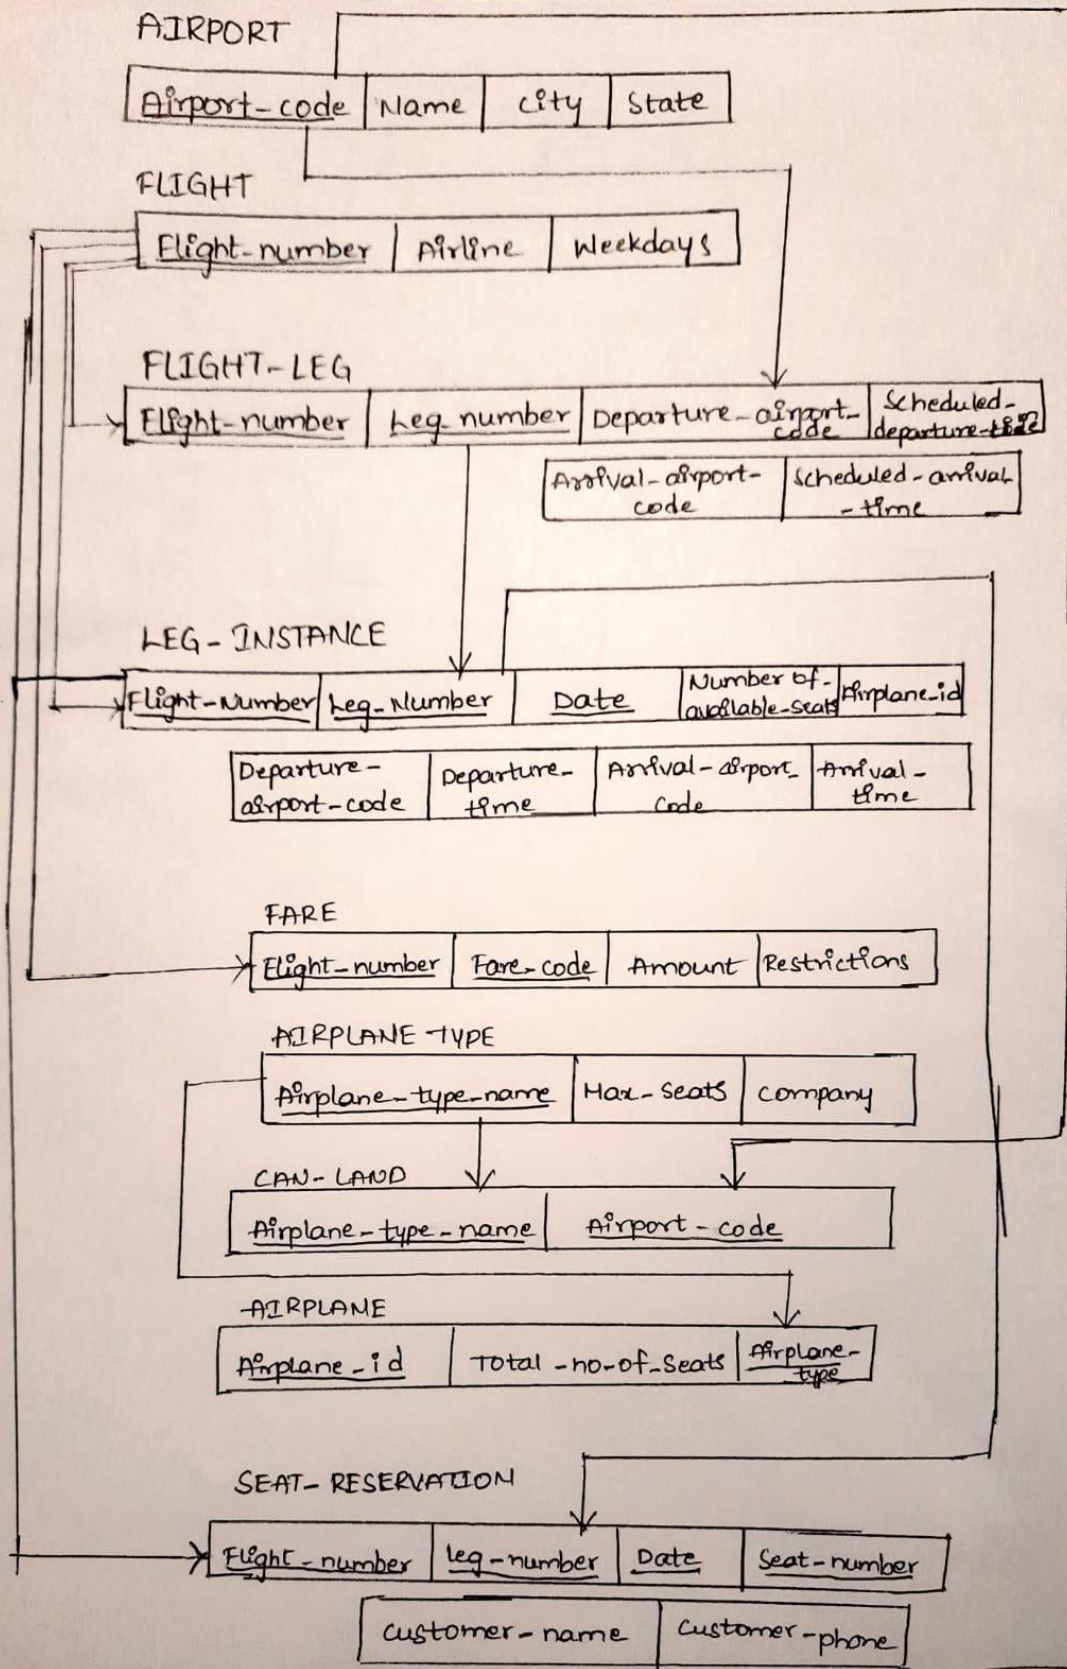 AIRPORT
Airport-code Name City State
FLIGHT
Flight-number Airline Weekdays
FLIGHT-LEG
Flight-number Leg number Departure-airport-code Scheduled-departure-time
Arrival-airport-code Scheduled-arrival-time
LEG-INSTANCE
Flight-Number Leg-Number Date Number of-available-seats Airplane-id
Departure-airport-code Departure-time Arrival-airport-code Arrival-time
FARE
Flight-number Fare-code Amount Restrictions
AIRPLANE TYPE
Airplane-type-name Max-Seats Company
CAN-LAND
Airplane-type-name Airport-code
AIRPLANE
Airplane-id Total-no-of-Seats Airplane-type
SEAT-RESERVATION
Flight-number leg-number Date Seat-number
Customer-name Customer-phone